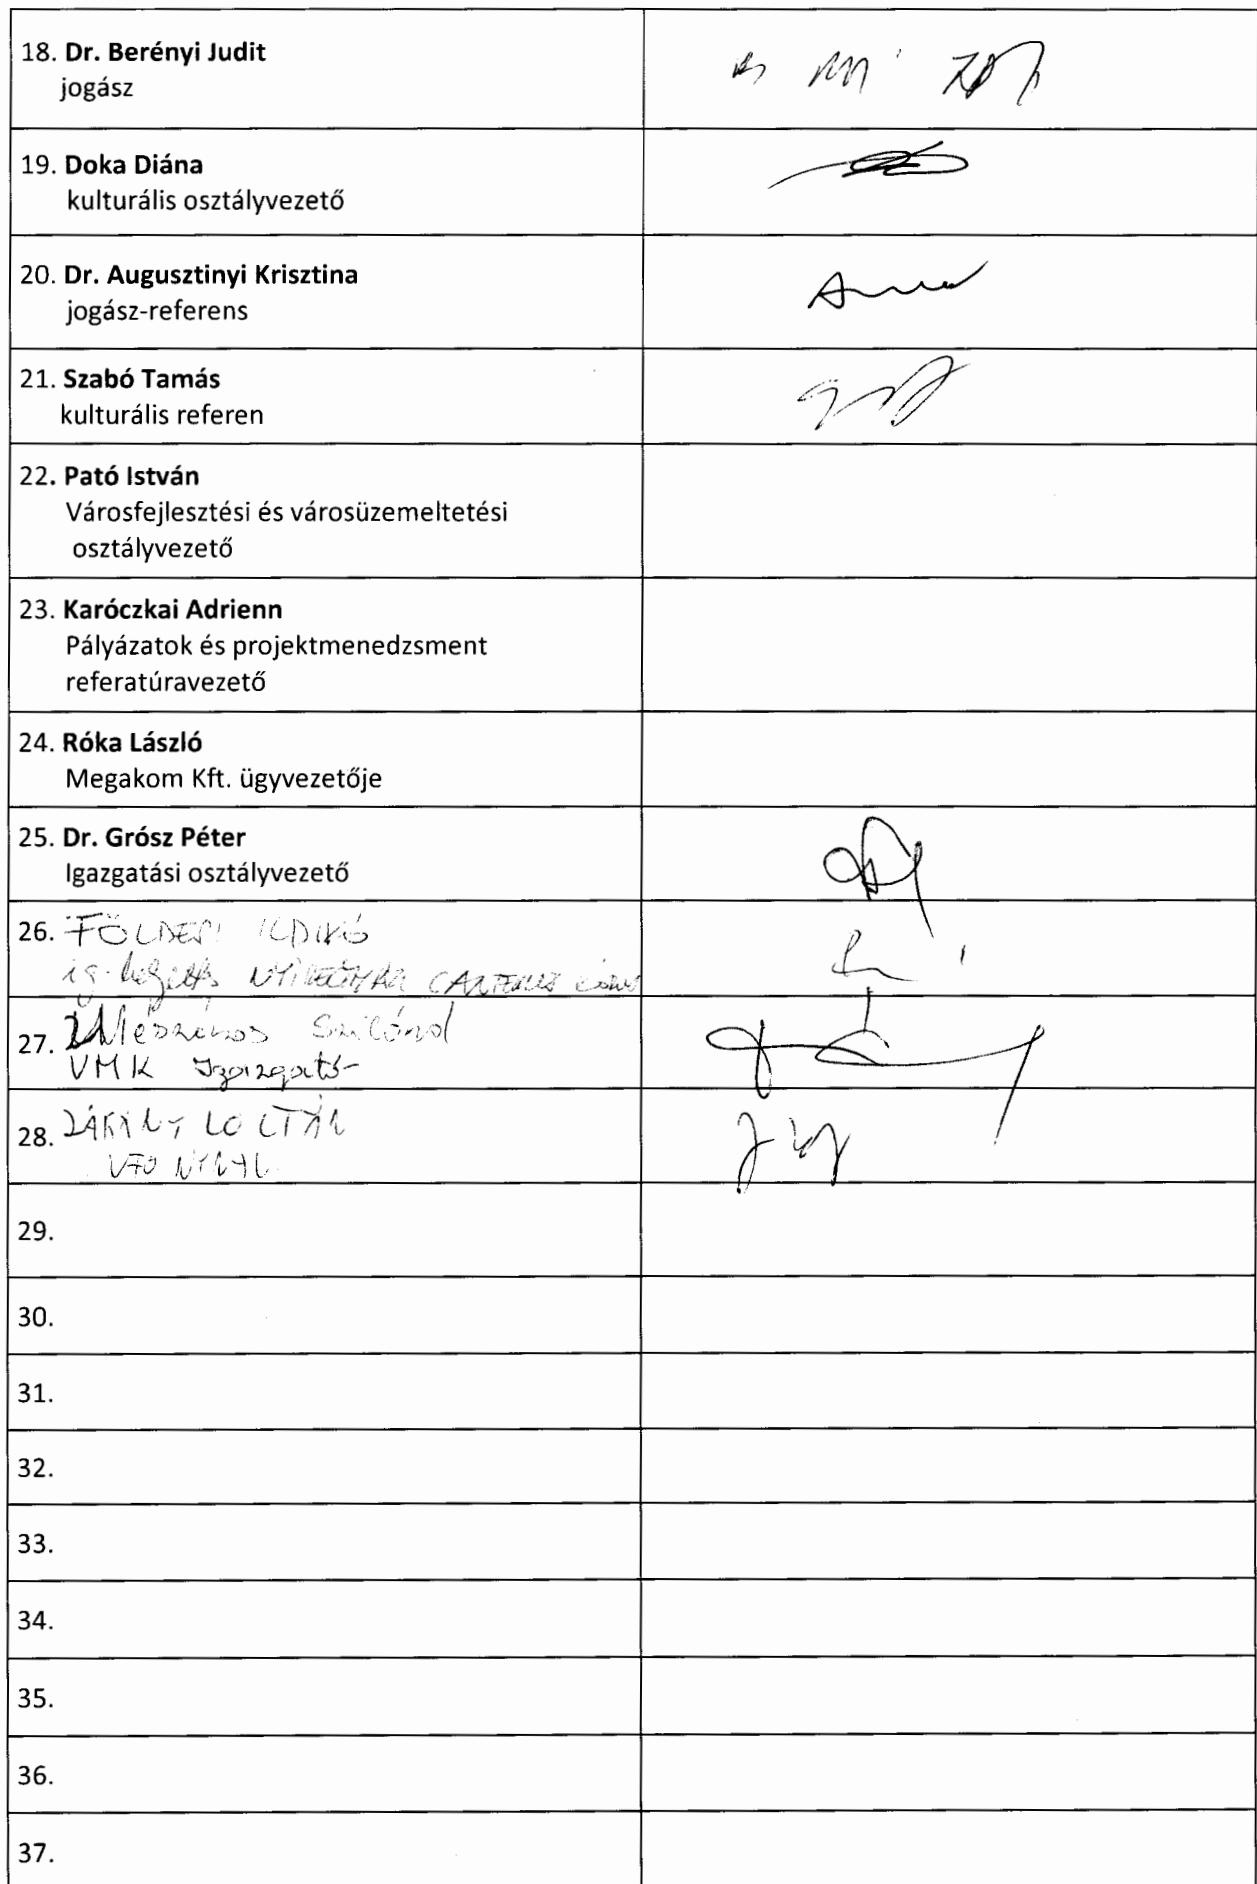 18. Dr. Berényi Judit
jogász
19. Doka Diána
kulturális osztályvezető
20. Dr. Augusztinyi Krisztina
jogász-referens
21. Szabó Tamás
kulturális referen
22. Pató István
Városfejlesztési és városüzemeltetési
osztályvezető
23. Karóczkai Adrienn
Pályázatok és projektmenedzsment
referatúravezető
24. Róka László
Megakom Kft. ügyvezetője
25. Dr. Grósz Péter
Igazgatási osztályvezető
26. FÖLDESI ILDIKÓ
27. Mészáros Szilárd
VMK Igazgató
28. ZÁKÁNY ZOLTÁN
29.
30.
31.
32.
33.
34.
35.
36.
37.